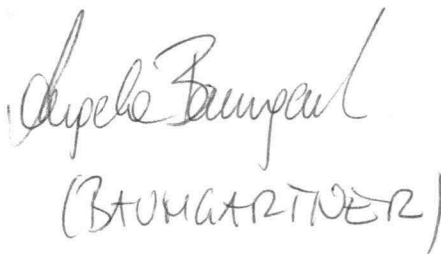 Angela Baumgart
(BAUMGARTNER)